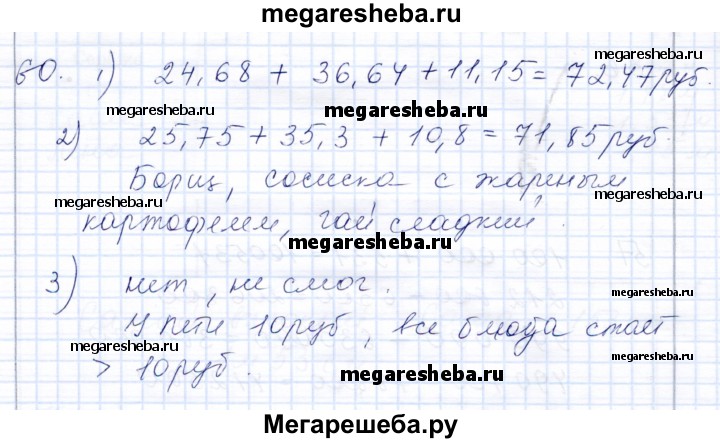 megaresheba.ru
megaresheba.ru
60. 1) 24,68 + 36,64 + 11,15 = 72,47 руб.
megaresheba.ru megaresheba.ru
2) 25,75 + 35,3 + 10,8 = 71,85 руб.
Борщ, сосиска с жареным
megaresheba.ru megaresheba.ru
картофелем, чай сладкий.
megaresheba.ru
3) нет, не смог.
У пети 10 руб, все блюда стоят
megaresheba.ru megaresheba.ru
> 10 руб.
megaresheba.ru
Мегарешеба.ру